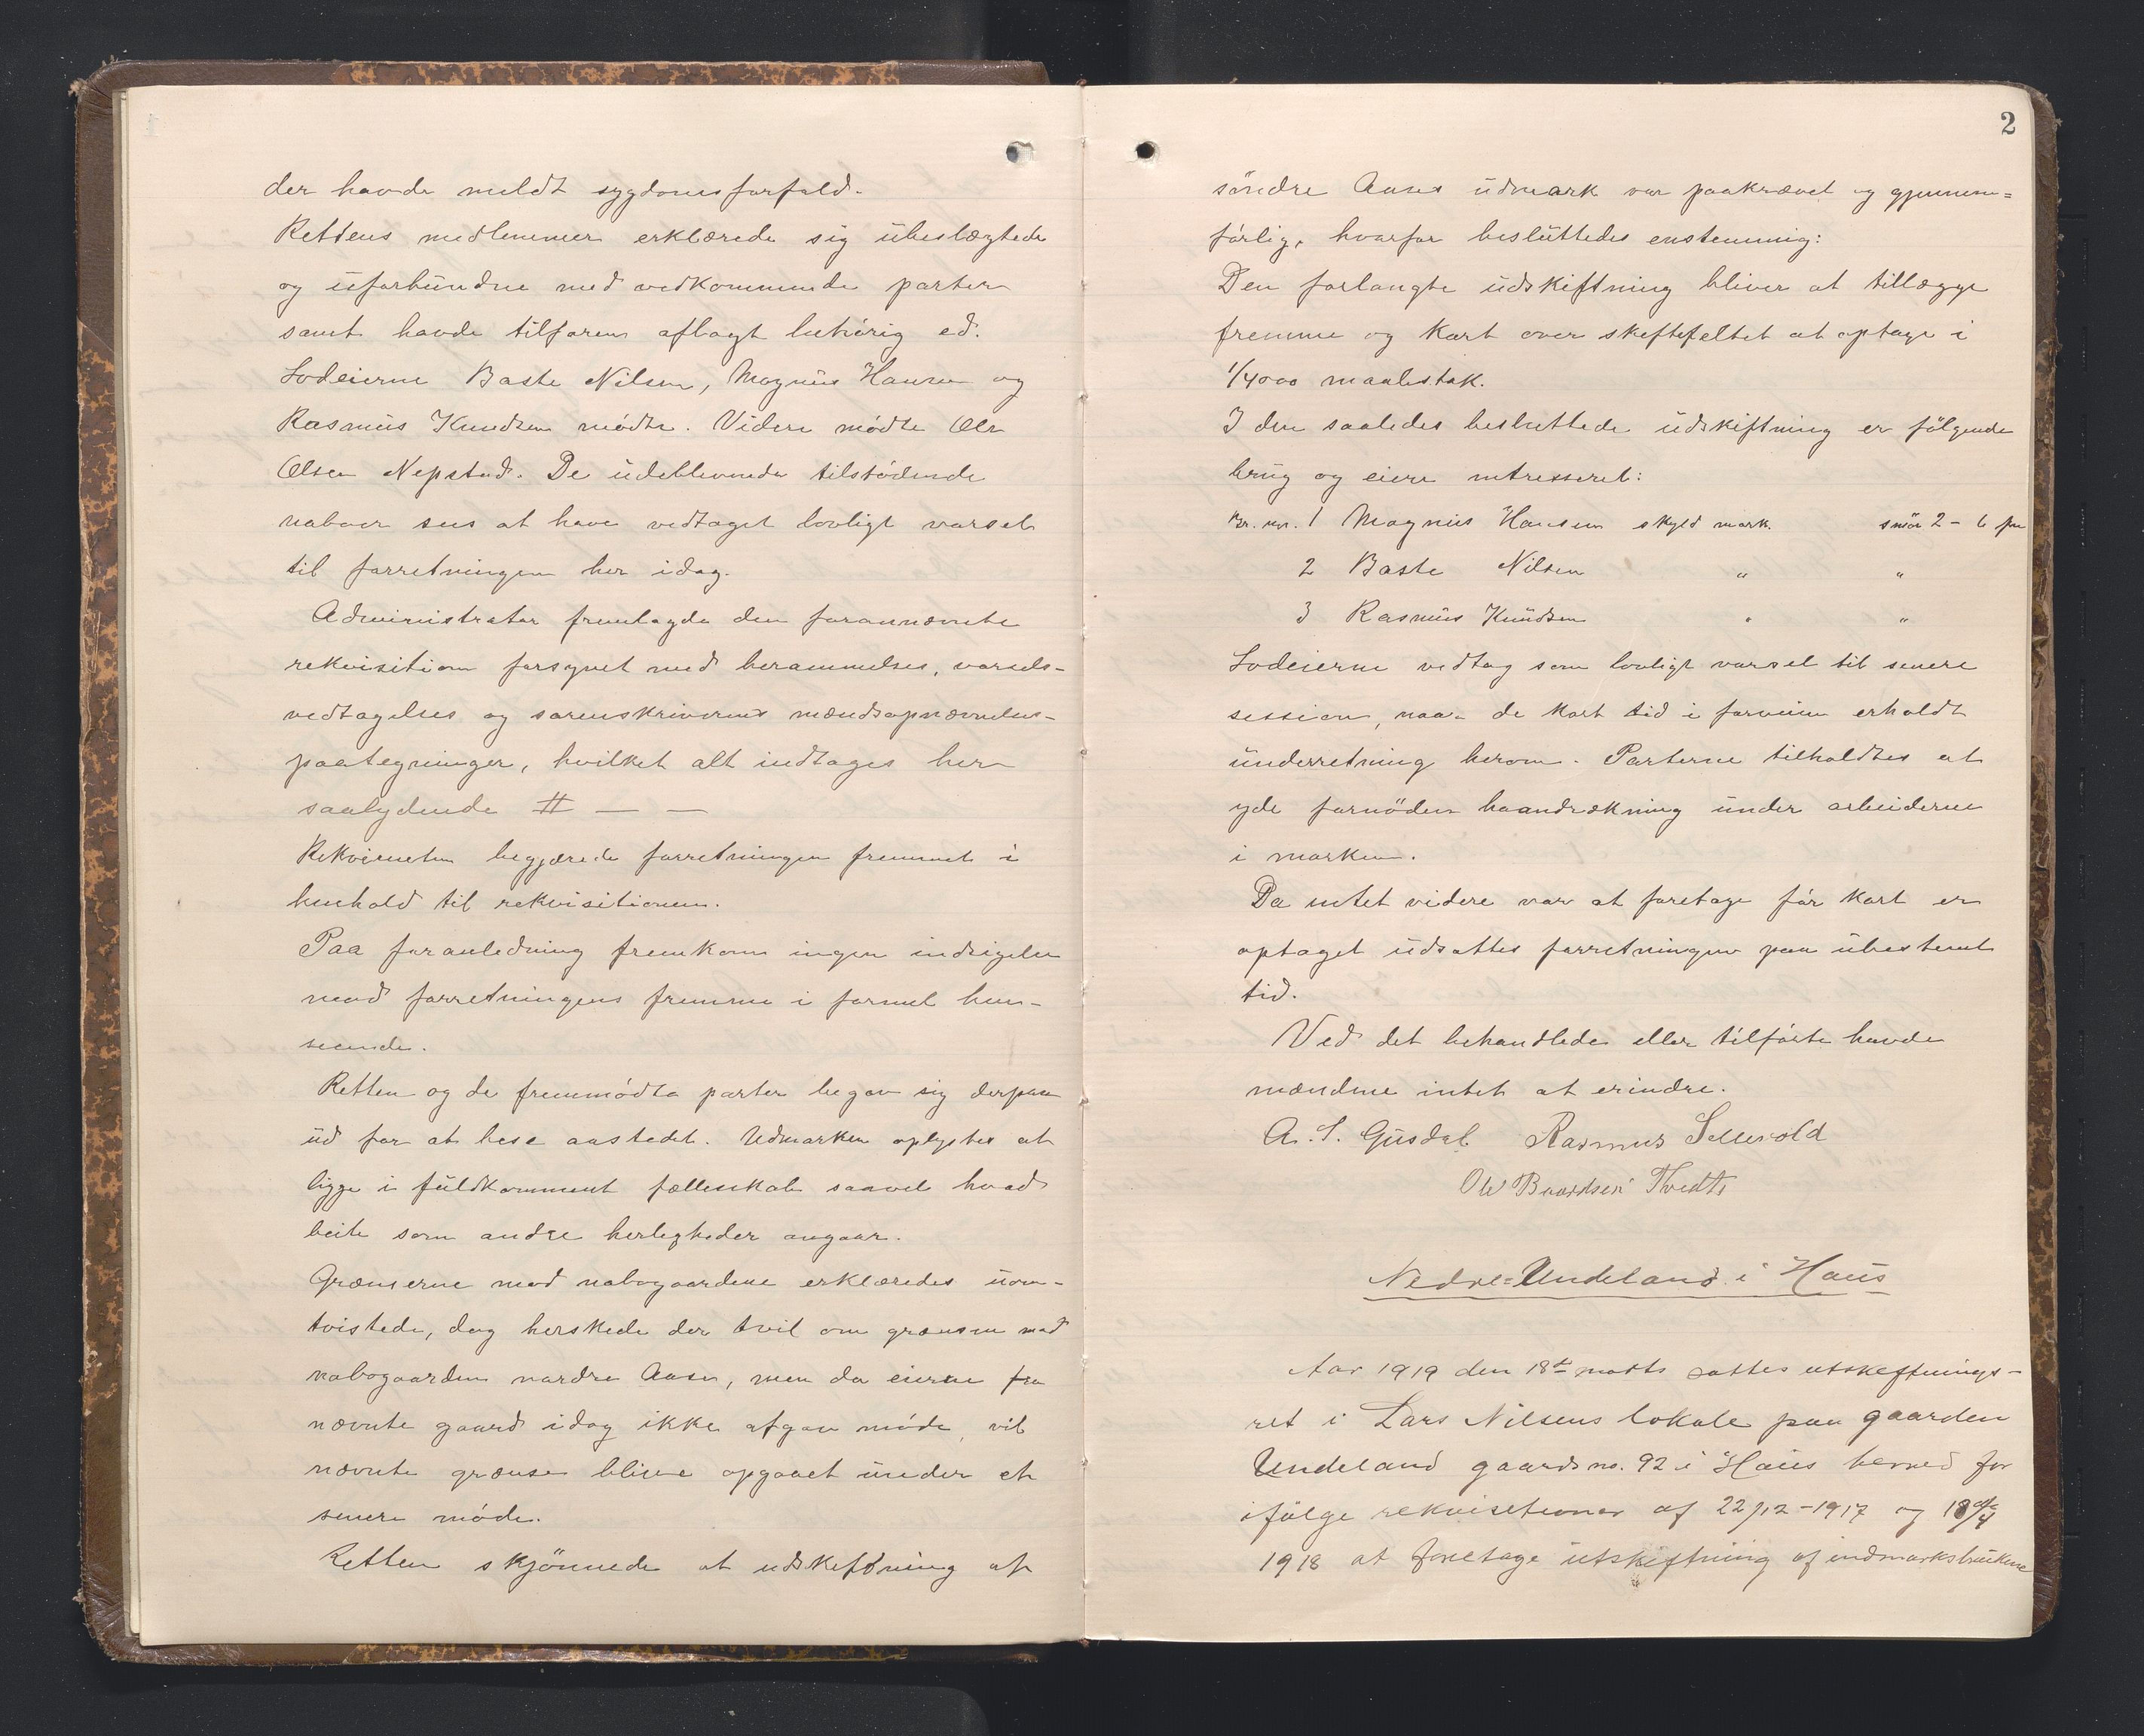 der havde meldt sygdomsforfald.
Rettens medlemmer erklærede sig ubeslægtede
og uforbundne med vedkommende parter
samt havde tilforn aflagt behörig ed.
Lodeierne Baste Nilsen, Magnus Hansen og
Rasmus Knudsen mödte. Videre mödte Ole
Olsen Nepstad. De udeblevnede tilstödende
naboer sees at have vedtaget lovligt varsel
til forretningen her idag.
Administrator fremlagde den forannævnte
rekvisition forsynet med berammelses, varsels-
vedtagelses og sorenskriverens mændsopnævnelses-
paategninger, hvilket alt indtages her
saalydende # — —
Rekvirenten begjærede forretningen fremmet i
henhold til rekvisitionen.
Paa foranledning fremkom ingen indsigelse
mod forretningens fremme i formel hen-
seende.
Retten og de fremmödte parter begav sig derpaa
ud for at bese aastedet. Udmarken oplystes at
ligge i fuldkomment fællesskab saavel hvad
beite som andre herligheder angaar.
Grænserne mod nabogaardene erklæredes uom-
tvistede, dog herskede der tvil om grænsen mod
nabogaarden nordre Aase, men da eierne fra
nævnte gaard idag ikke afgav möde, vil
nævnte grænse blive opgaaet under et
senere möde.
Retten skjönnede at udskiftning af
2
söndre Aases udmark var paakrævet og gjennem=
förlig, hvorfor besluttedes enstemmig:
Den forlangte udskiftning bliver at tillægge
fremme og kart over skiftefeltet at optage i
1/4000 maalestok.
I den saaledes besluttede udskiftning er fölgende
brug og eiere intresseret:
Br. nr. 1 Magnus Hansen skyld mark. smör 2 - 6 pn
2 Baste Nilsen " "
3 Rasmus Knudsen " "
Lodeierne vedtog som lovligt varsel til senere
session, naar de kort tid i forveien erholdt
underretning herom. Parterne tilholdtes at
yde fornöden haandrækning under arbeiderne
i marken.
Da intet videre var at foretage för kart er
optaget udsattes forretningen paa ubestemt
tid.
Ved det behandlede eller tilförte havde
mændene intet at erindre.
A. S. Gusdal Rasmus Sellevold
Ole Baardsen Tvedt
Nedre=Undeland i Haus
Aar 1919 den 18de marts sattes utskiftnings-
ret i Lars Nilsens lokale paa gaarden
Undeland gaardsno. 92 i Haus herred for
ifölge rekvisitioner af 22/12-1917 og 18/4
1918 at foretage utskiftning af indmarksbrukene